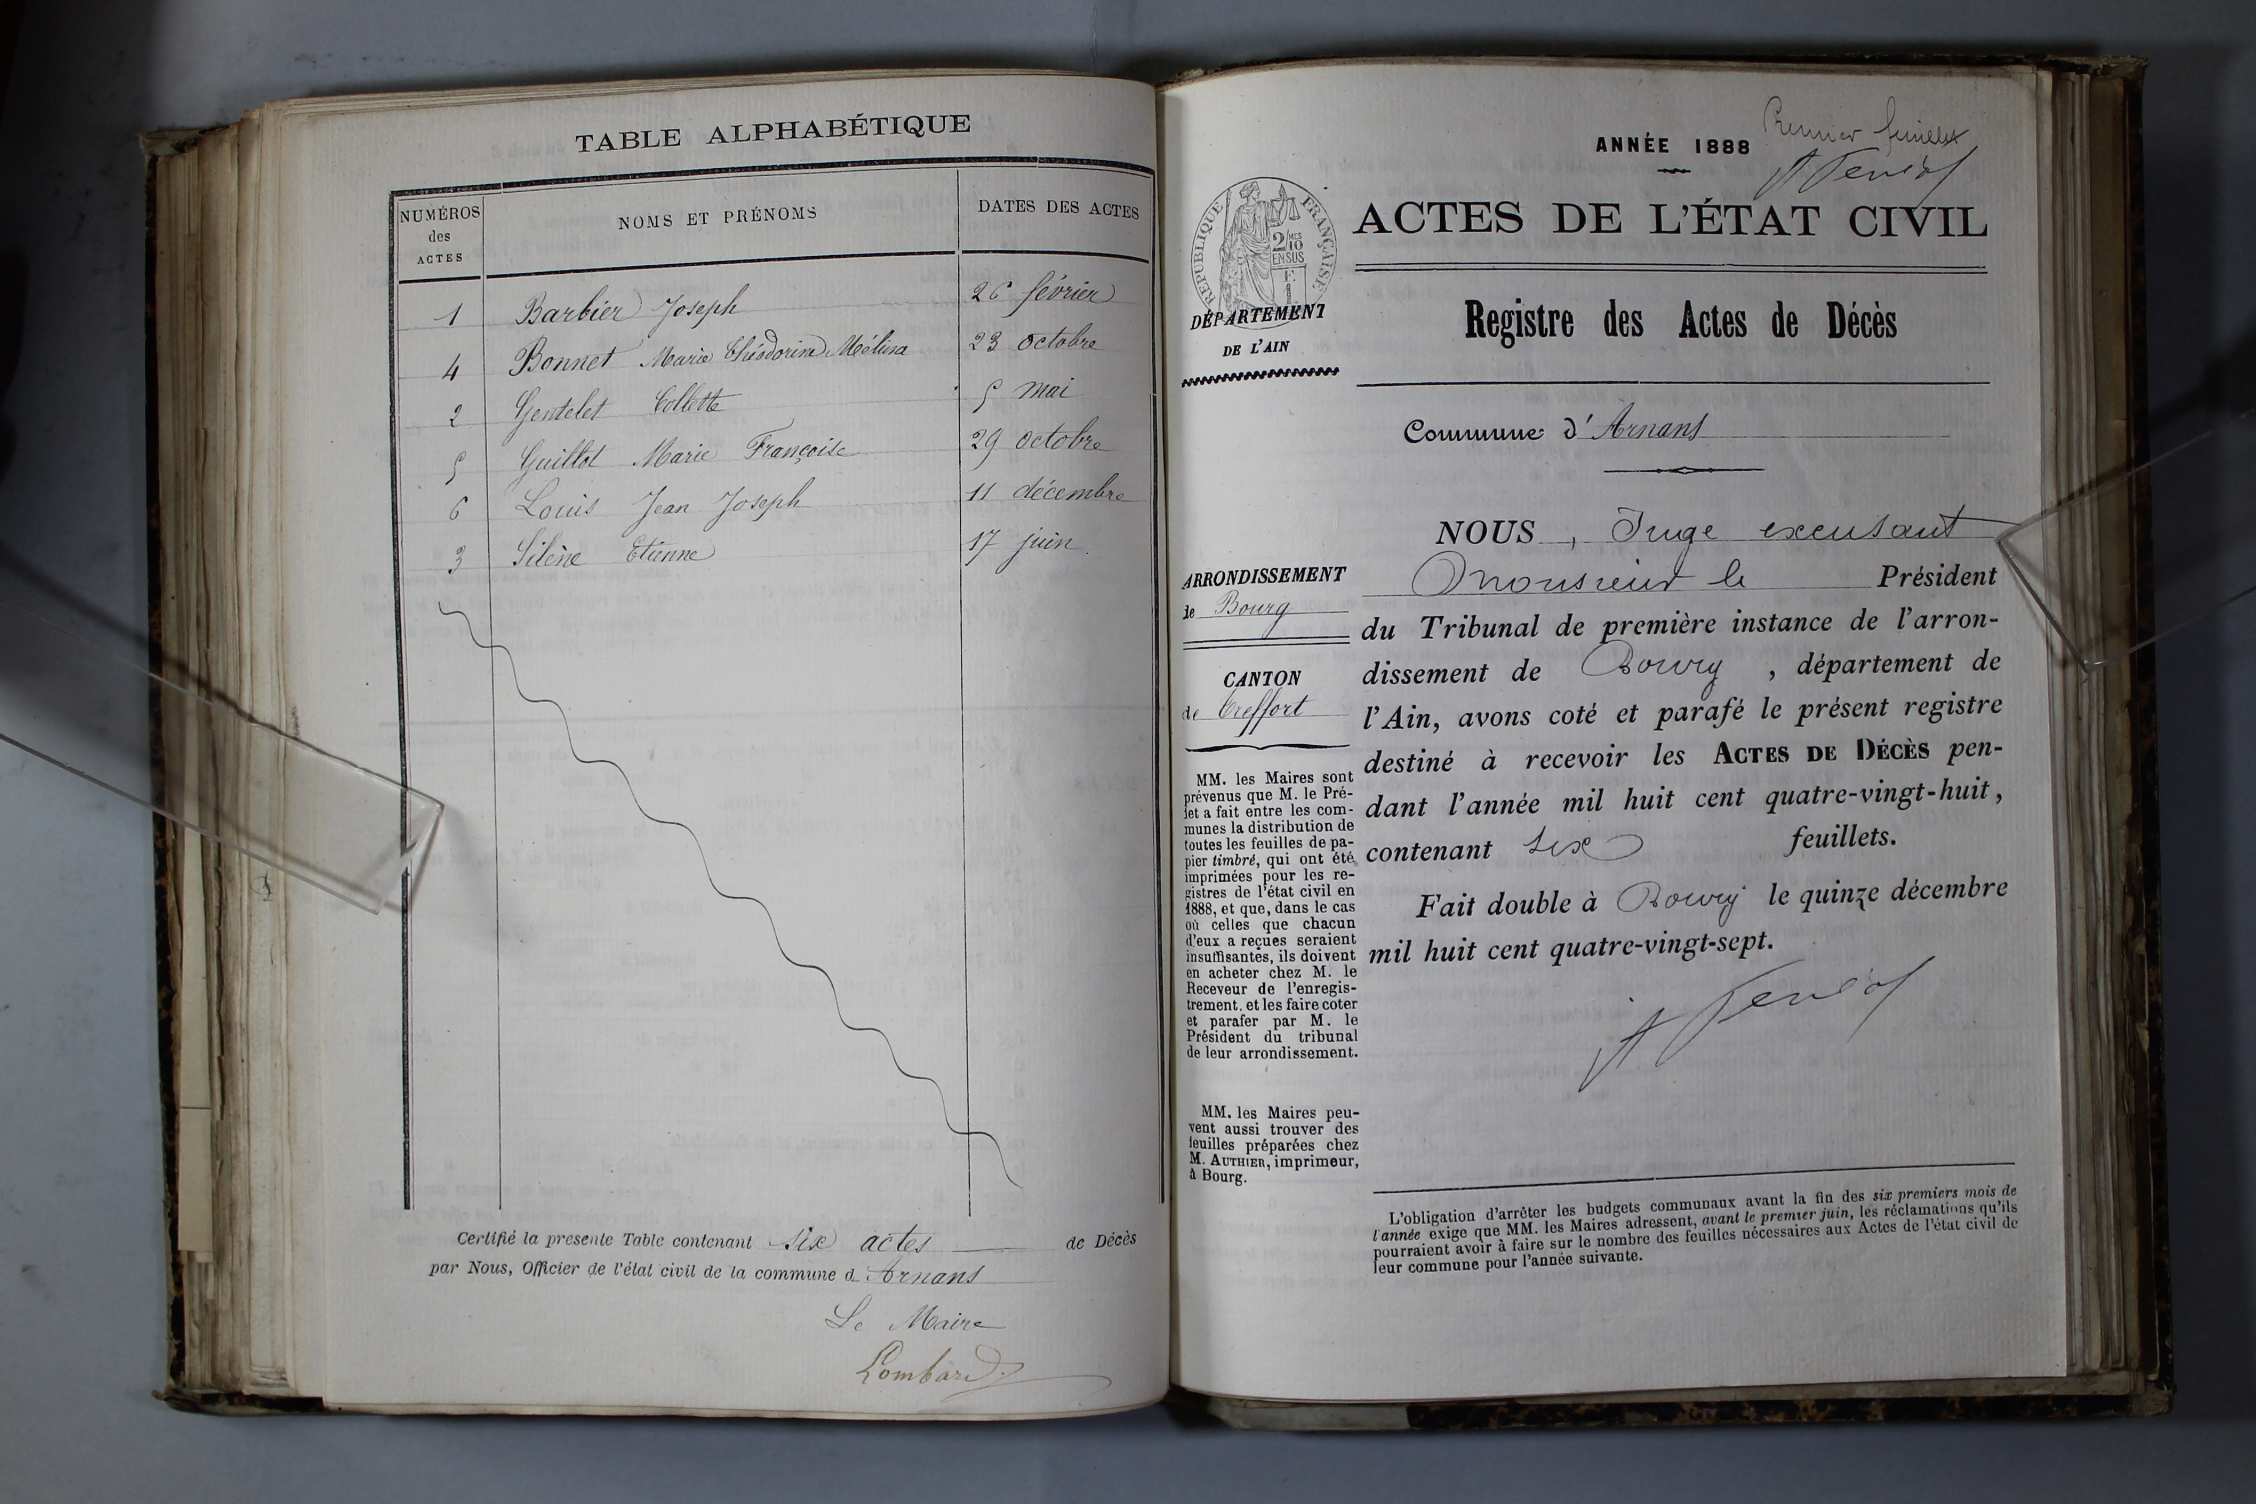 TABLE ALPHABÉTIQUE
NUMÉROS des ACTES NOMS ET PRÉNOMS DATES DES ACTES
1 Barbier Joseph 26 février
4 Bonnet Marie Théodorine Mélina 23 octobre
2 Gentelet Collette 5 mai
5 Guillot Marie Françoise 29 octobre
6 Louis Jean Joseph 11 décembre
3 Silène Etienne 17 juin
Certifié la présente Table contenant six actes de Décès
par Nous, Officier de l'état civil de la commune d Arnans
Le Maire
Lombard
Premier feuillet
ANNÉE 1888
ACTES DE L'ÉTAT CIVIL
RÉPUBLIQUE FRANÇAISE
2/10 MES
EN SUS
F
1
DÉPARTEMENT
DE L'AIN
Registre des Actes de Décès
Commune d'Arnans
ARRONDISSEMENT
de Bourg
CANTON
de Treffort
MM. les Maires sont
prévenus que M. le Pré-
fet a fait entre les com-
munes la distribution de
toutes les feuilles de pa-
pier timbré, qui ont été
imprimées pour les re-
gistres de l'état civil en
1888, et que, dans le cas
où celles que chacun
d'eux a reçues seraient
insuffisantes, ils doivent
en acheter chez M. le
Receveur de l'enregis-
trement, et les faire coter
et parafer par M. le
Président du tribunal
de leur arrondissement.
MM. les Maires peu-
vent aussi trouver des
feuilles préparées chez
M. AUTHIER, imprimeur,
à Bourg.
NOUS, Juge excusant
Monsieur le Président
du Tribunal de première instance de l'arron-
dissement de Bourg, département de
l'Ain, avons coté et parafé le présent registre
destiné à recevoir les ACTES DE DÉCÈS pen-
dant l'année mil huit cent quatre-vingt-huit,
contenant six feuillets.
Fait double à Bourg le quinze décembre
mil huit cent quatre-vingt-sept.
L'obligation d'arrêter les budgets communaux avant la fin des six premiers mois de
l'année exige que MM. les Maires adressent, avant le premier juin, les réclamations qu'ils
pourraient avoir à faire sur le nombre des feuilles nécessaires aux Actes de l'état civil de
leur commune pour l'année suivante.